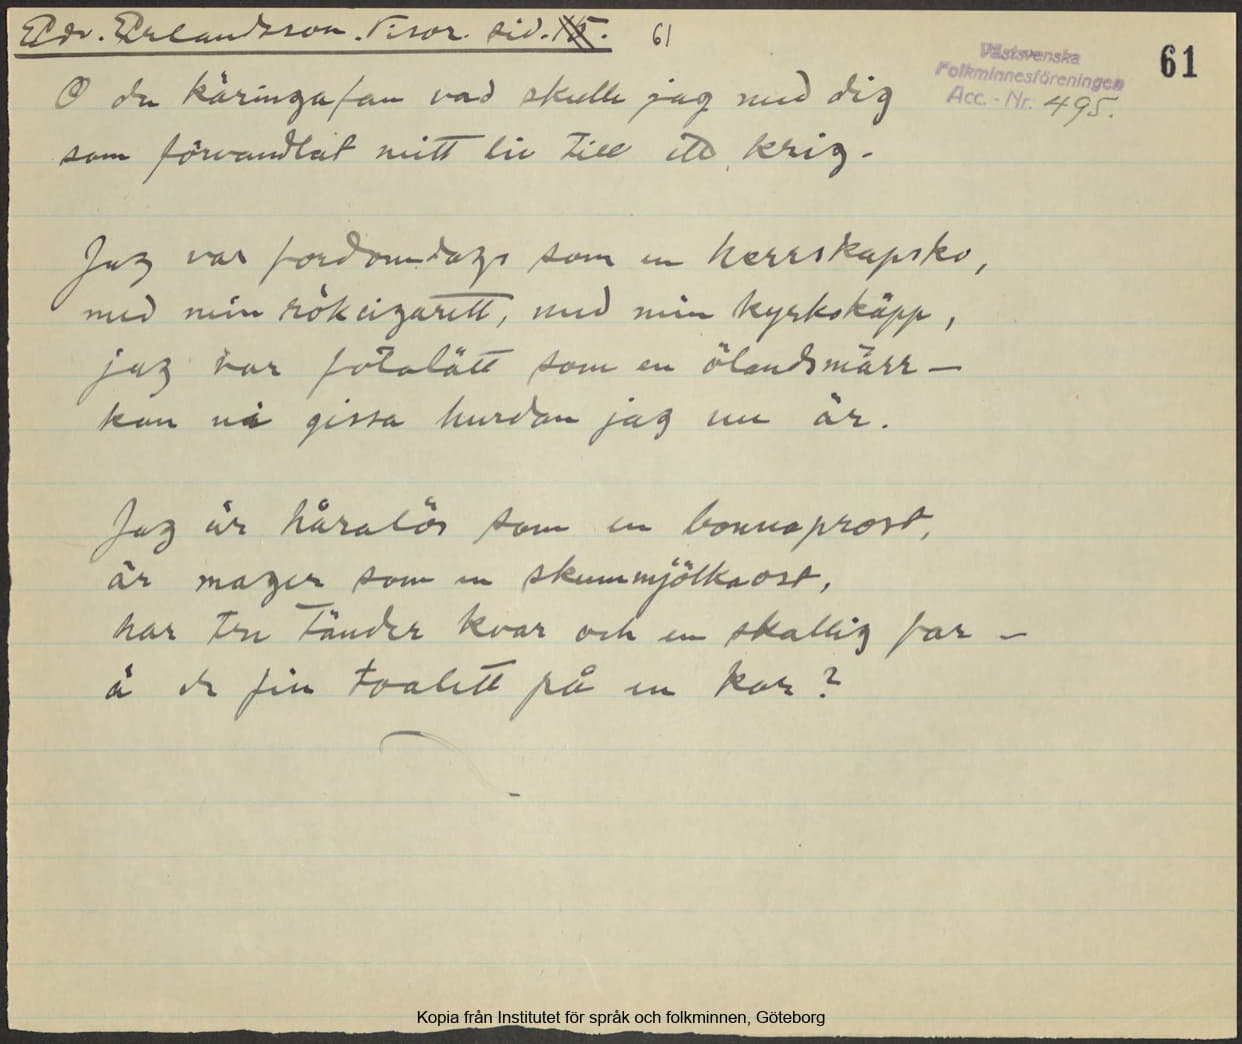 Edv. Erlandsson. Visor. sid. 61
61
Västsvenska
Folkminnesföreningen
Acc. - Nr. 495.
O du käringafan vad skulle jag med dig
som förvandlat mitt liv till ett krig.
Jag var fordomdags som en herrskapsko,
med min rökcigarett, med min kyrkokäpp,
jag var fotalätt som en ölandsmärr —
kan ni gissa hurdan jag nu är.
Jag är håralös som en bonnaprost,
är mager som en skummjölksost,
har tru tänder kvar och en skallig far —
ä de fin toalett på en kar?
Kopia från Institutet för språk och folkminnen, Göteborg